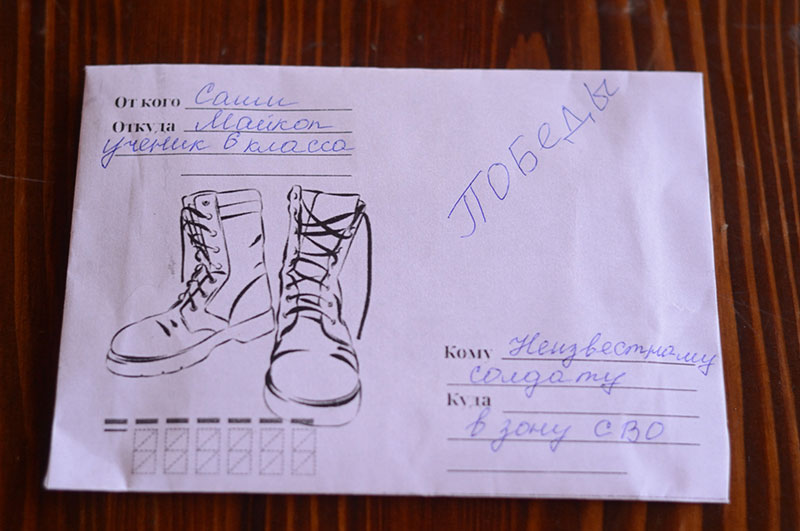 От кого Саши
Откуда Майкоп
ученик 6 класса
ПОБЕДЫ
Кому Неизвестному
солдату
Куда
в зону СВО